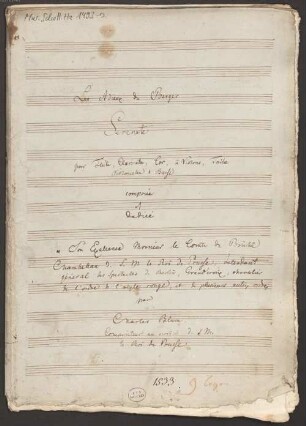 Les Adieux du Berger
Serenate
pour Flûte, Clarinette, Cor, 2 Violons, Viola
Violoncelle & Basse
composée
et
dediée
à Son Excellence Monsieur le Comte de Brühl
Chambellan de S. M. le Roi de Prusse, intendant
général des Spectacles de Berlin, chevalier
de l'ordre de l'aigle rouge, et de plusieurs autres ordres
par
Charles Blum
Compositeur au service de S. M.
le Roi de Prusse.
1533